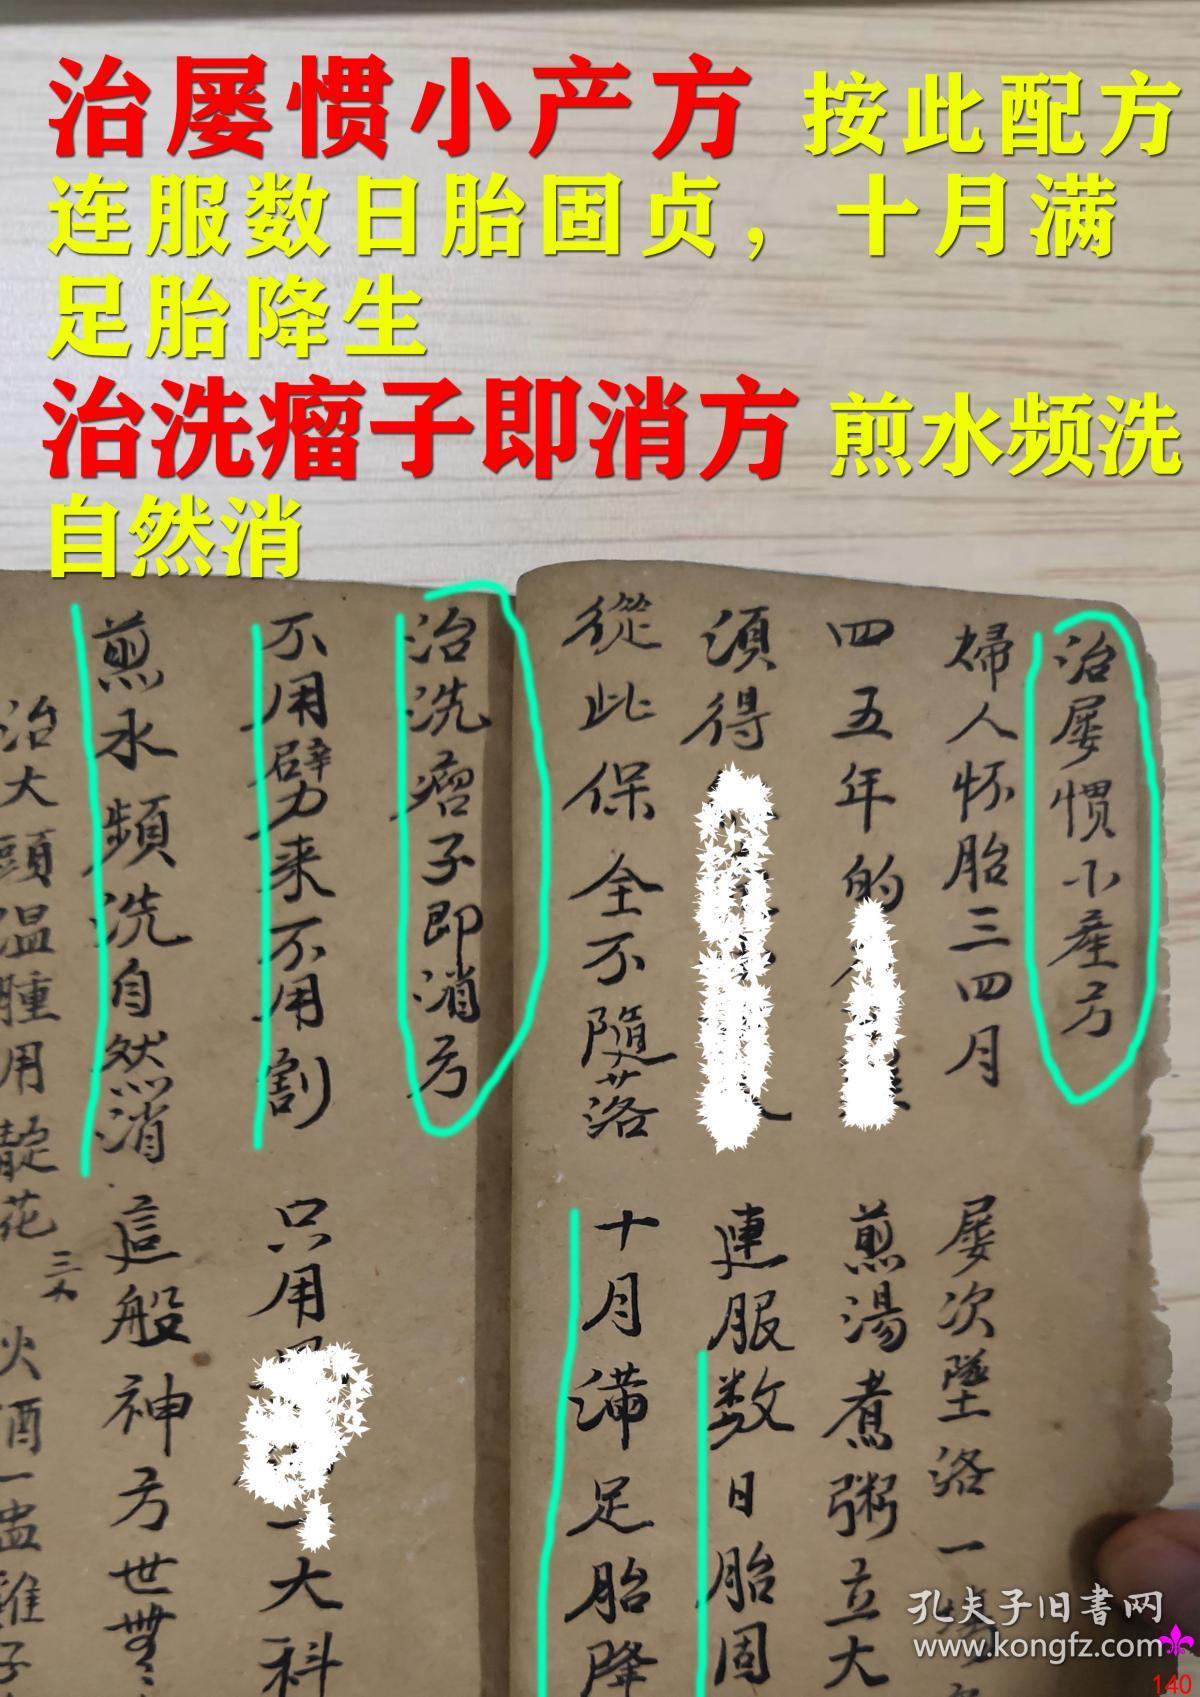 治屡惯小产方 按此配方
连服数日胎固贞，十月满
足胎降生
治洗瘤子即消方 煎水频洗
自然消
治屡慣小產方
婦人怀胎三四月 屡次墜洛一
四五年的 煎湯煮粥立大
須得 連服数日胎固
從此保全不隨落 十月满足胎降
治洗瘤子即消方
不用劈来不用割 只用 一大科
煎水頻洗自然消 這般神方世
治大頭温腫用靛花 三 火酒一盅雞子
孔夫子旧書网
www.kongfz.com
140